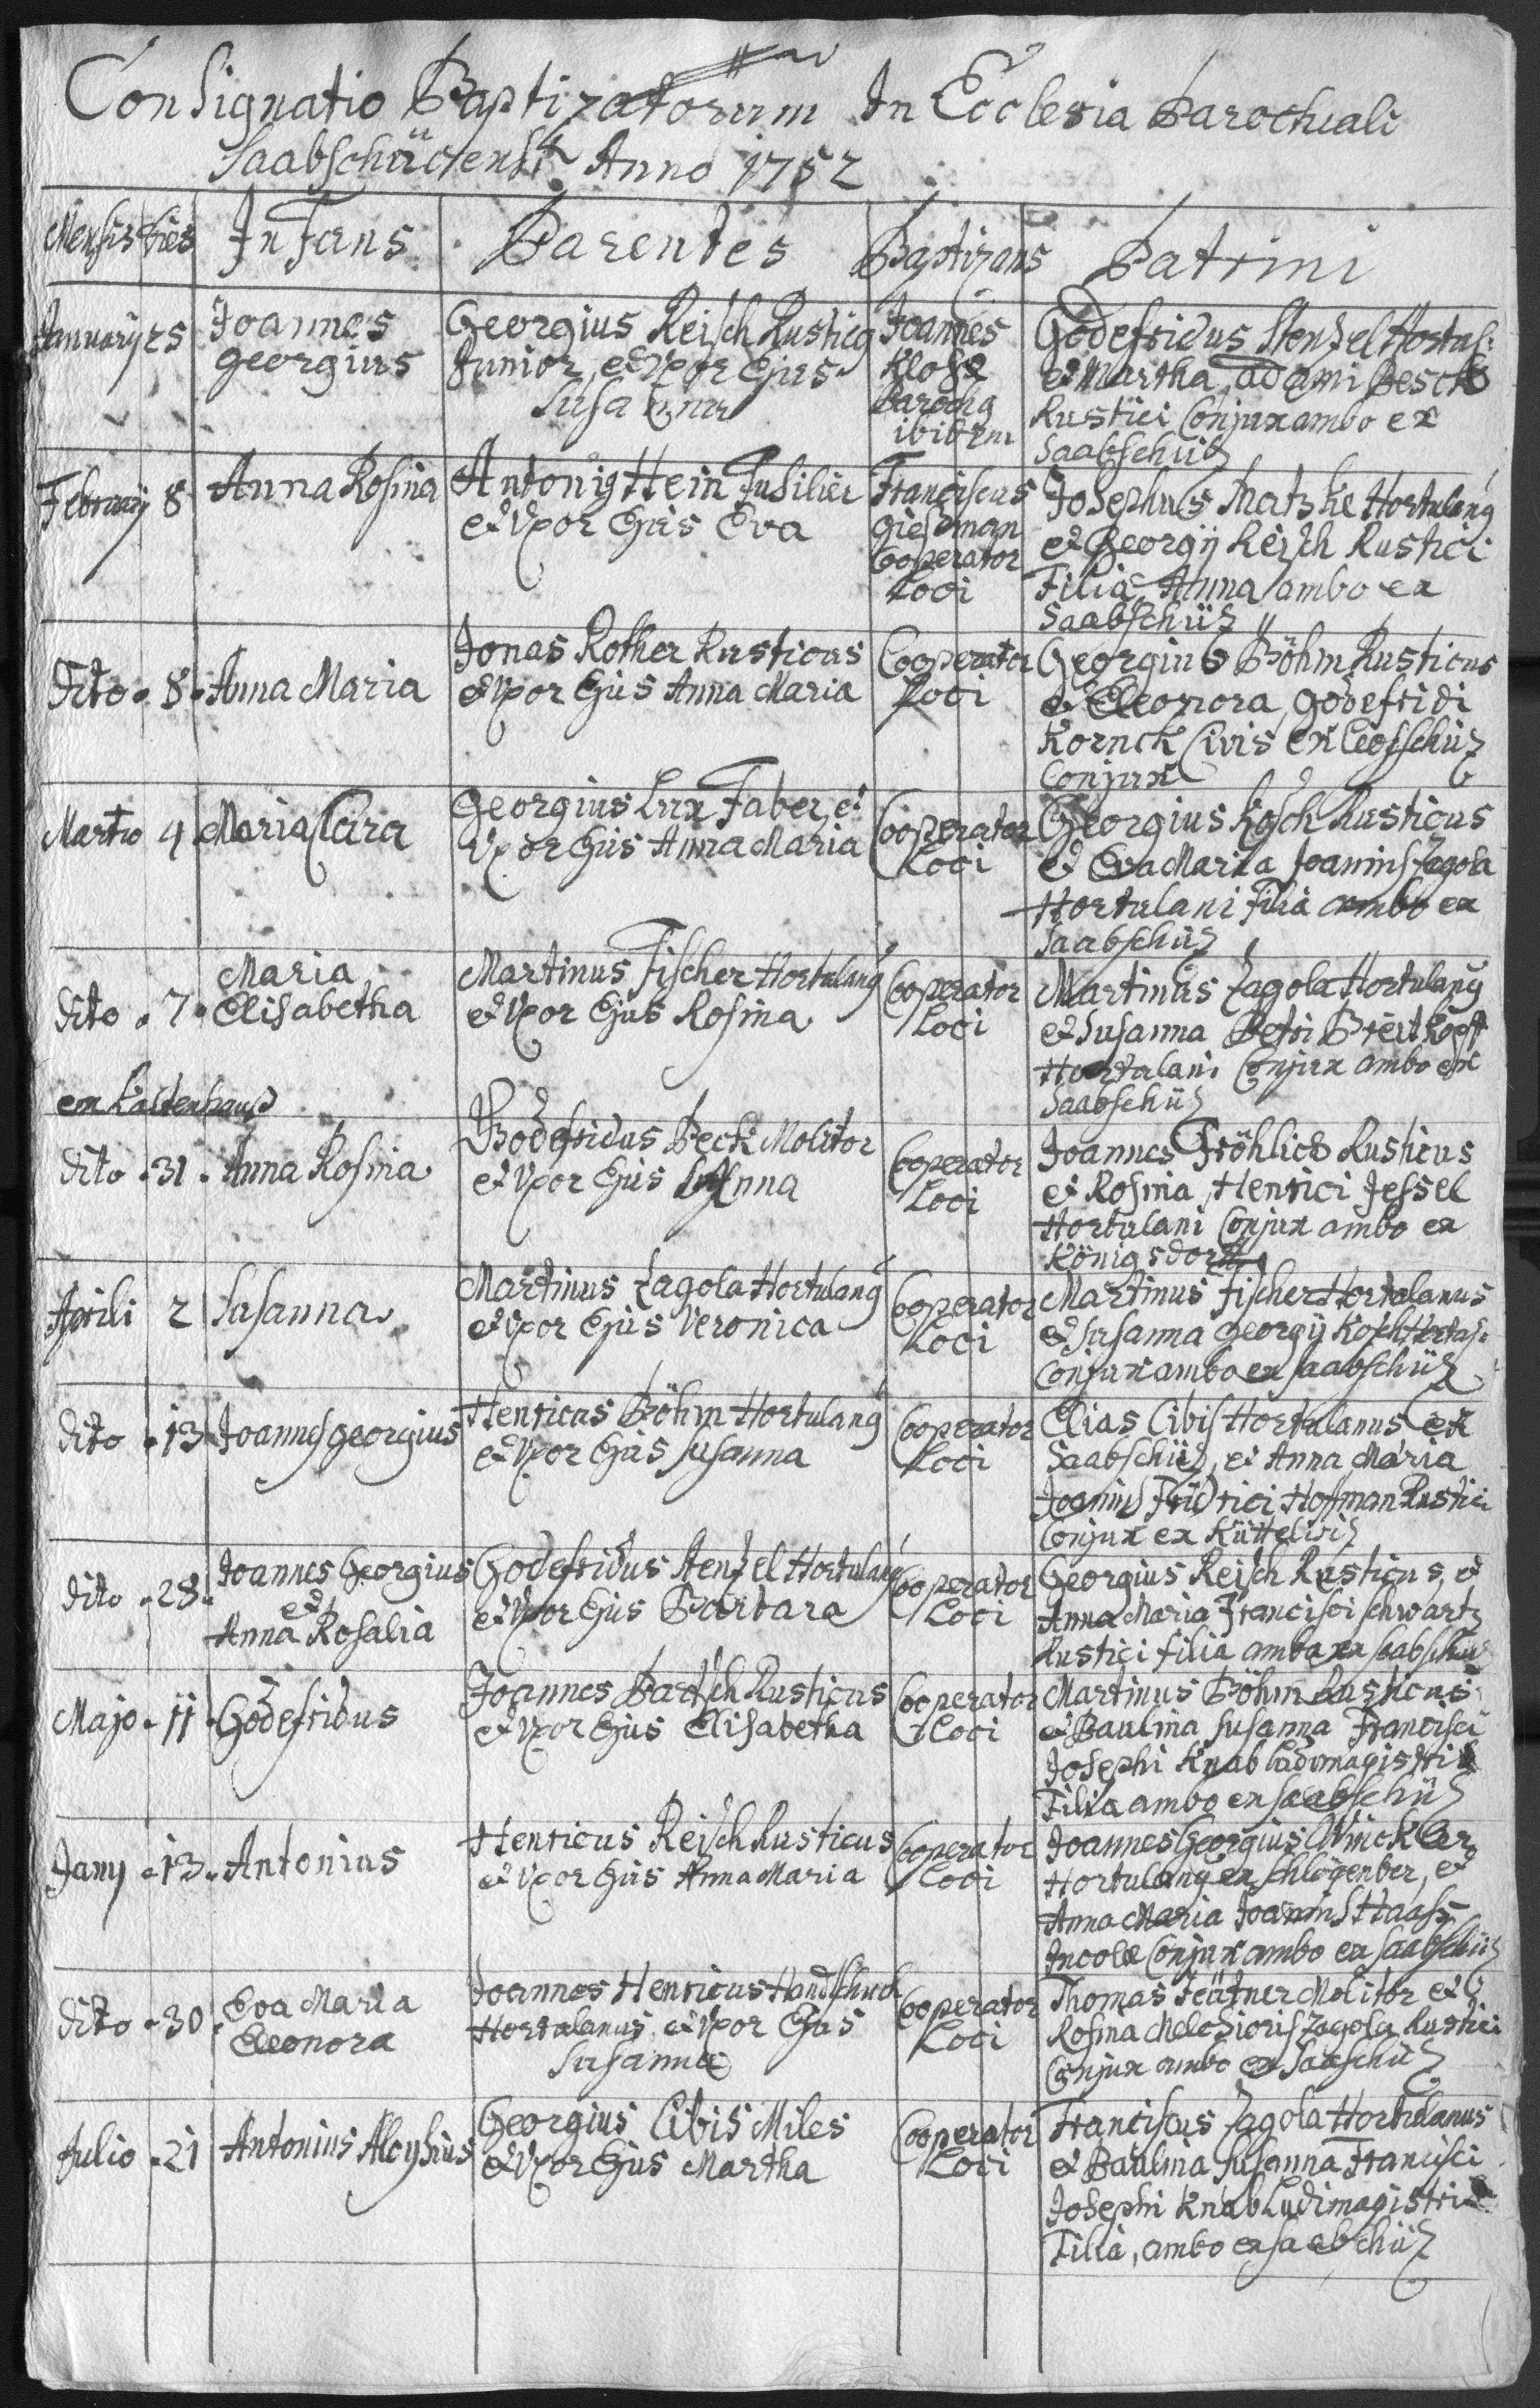 Consignatio Baptizatorum In Ecclesia Parochiali
Saabschüzensi Anno 1752
Mensis Dies Infans Parentes Baptizans Patrini
January 25
Joannes
Georgius
Georgius Reisch Rusticq
Junior, et Uxor Ejus
Susanna
Joannes
Klose
Parochq
ibidem
Godefridus Stenzel Hortul:
et Martha, Adami Pesck
Rustici Conjux ambo ex
Saabschüz
February 8
Anna Rosina
Antoniq Hein Fusilier
et Uxor Ejus Eva
Franciscus
Giesman
Cooperator
Loci
Josephus Matzke Hortulanq
et Georgÿ Reisch Rustici
Filia Anna ambo ex
Saabschüz
Dito 8 Anna Maria
Jonas Rother Rusticus
et Uxor Ejus Anna Maria
Cooperator
Loci
Georgius Böhm Rusticus
et Eleonora, Godefridi
Kornck Civis ex Leosschüz
Conjux
Martio 4 Maria Clara
Georgius Lux Faber, et
Uxor Ejus Anna Maria
Cooperator
Loci
Georgius Kosch Rusticus
et Eva Maria Joannis Zagola
Hortulani Filia ambo ex
Saabschüz
Dito 7
Maria
Elisabetha
Martinus Fischer Hortulanq
et Uxor Ejus Rosina
Cooperator
Loci
Martinus Zagola Hortulanq
et Susanna Petri Breitkopf
Hortulani Conjux ambo ex
Saabschüz
ex Kaldenhaus
Dito 31 Anna Rosina
Godefridus Beck Molitor
et Uxor Ejus Anna
Cooperator
Loci
Joannes Fröhlich Rusticus
et Rosina, Henrici Jessel
Hortulani Conjux ambo ex
Königsdorff
Aprili 2 Susanna
Martinus Zagola Hortulanq
et Uxor Ejus Veronica
Cooperator
Loci
Martinus Fischer Hortulanus
et Susanna Georgÿ Kosch Hortul:
Conjux ambo ex Saabschüz
Dito 13 Joannes Georgius
Henricus Böhm Hortulanq
et Uxor Ejus Susanna
Cooperator
Loci
Elias Cibis Hortulanus ex
Saabschüz, et Anna Maria
Joannis Fridrici Hoffman Rustici
Conjux ex
Dito 28
Joannes Georgius
et
Anna Rosalia
Godefridus Stenzel Hortulanq
et Uxor Ejus Barbara
Cooperator
Loci
Georgius Reisch Rusticus, et
Anna Maria Francisci Schwartz
Rustici filia ambo ex Saabschüz
Majo 11 Godefridus
Joannes Bartsch Rusticus
et Uxor Ejus Elisabetha
Cooperator
Loci
Martinus Böhm Rusticus
et Paulina Susanna Francisci
Josephi Knab Ludimagistri
Filia ambo ex Saabschüz
Juny 13 Antonius
Henricus Reisch Rusticus
et Uxor Ejus Anna Maria
Cooperator
Loci
Joannes Georgius Winckler
Hortulanq ex Schlögenber, et
Anna Maria Joannis Haass
Incolæ Conjux ambo ex Saabschüz
Dito 30
Eva Maria
Eleonora
Joannes Henricus Handschuch
Hortulanus et Uxor Ejus
Susanna
Cooperator
Loci
Thomas Molitor et
Rosina Melchioris Zagola Rustici
Conjux ambo ex Saaschüz
Julio 21 Antonius Aloysius
Georgius Cibis Miles
et Uxor Ejus Martha
Cooperator
Loci
Franciscus Zagola Hortulanus
et Paulina Susanna Francisci
Josephi Knab Ludimagistri
Filia, ambo ex Saabschüz